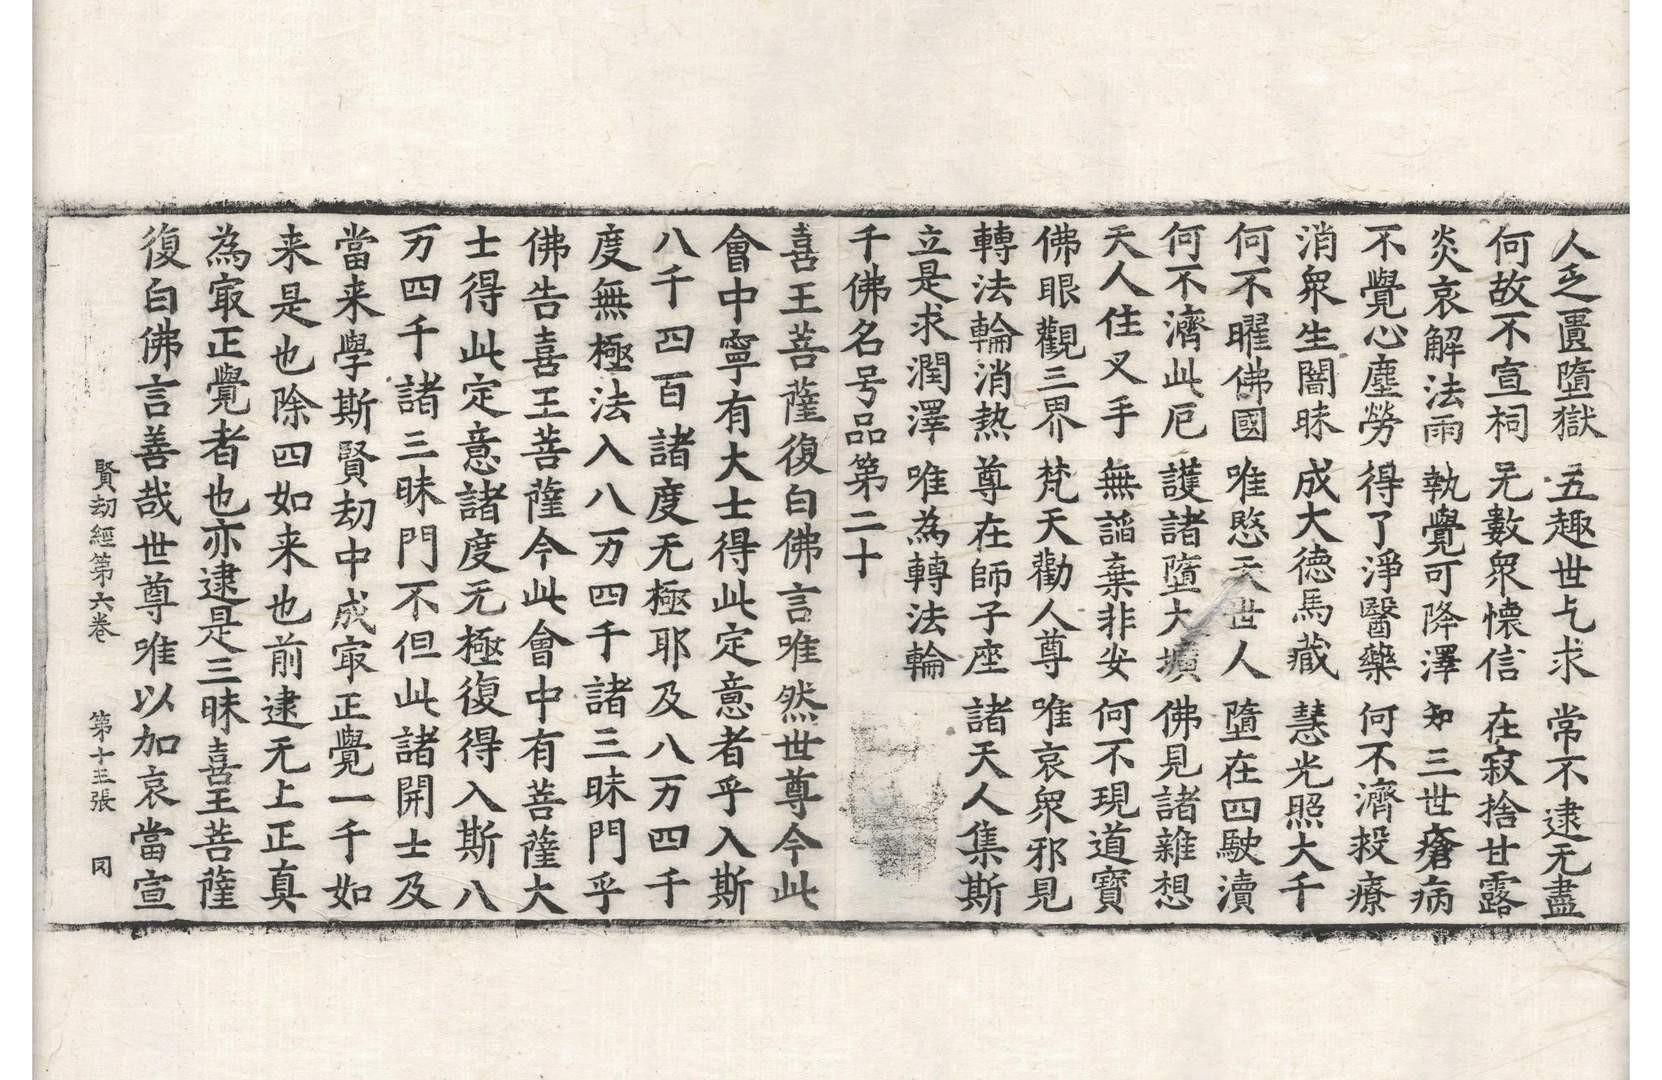 人乏匱墮獄 五趣世乞求 常不逮无盡
何故不宣祠 无數衆懷信 在寂捨甘露
炎哀解法雨 執覺可降澤 知三世瘡病
不覺心塵勞 得了淨醫藥 何不濟殺療
消衆生闇昧 成大德馬藏 慧光照大千
何不曜佛國 唯愍天世人 墮在四駛瀆
何不濟此厄 護諸墮大壙 佛見諸雜想
天人住叉手 無諂棄非安 何不現道寶
佛眼觀三界 梵天勸人尊 唯哀衆邪見
轉法輪消熱 尊在師子座 諸天人集斯
立是求潤澤 唯為轉法輪
千佛名号品第二十
喜王菩薩復白佛言唯然世尊今此
會中寧有大士得此定意者乎入斯
八千四百諸度无極耶及八万四千
度無極法入八万四千諸三昧門乎
佛告喜王菩薩今此會中有菩薩大
士得此定意諸度无極復得入斯八
万四千諸三昧門不但此諸開士及
當来學斯賢劫中成㝡正覺一千如
来是也除四如来也前逮无上正真
為㝡正覺者也亦逮是三昧喜王菩薩
復白佛言善哉世尊唯以加哀當宣
賢劫經第六卷 第十三張 罔